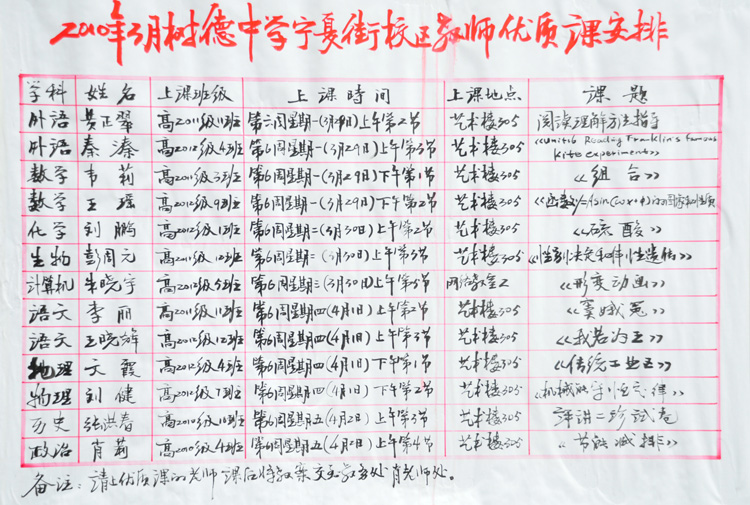 2010年3月树德中学宁夏街校区教师优质课安排
学科 姓名 上课班级 上课时间 上课地点 课题
外语 黄正翠 高2011级11班 第二周星期一(3月1日)上午第2节 艺术楼305 阅读理解解方法指导
外语 秦溱 高2012级4班 第6周星期一(3月29日)上午第3节 艺术楼305 《unit16 Reading Franklin's Famous Kite experiment》
数学 韦莉 高2011级3班 第6周星期一(3月29日)下午第1节 艺术楼305 《组合》
数学 王瑶 高2012级9班 第6周星期一(3月29日)下午第2节 艺术楼305 《函数y=Asin(ωx+φ)的图象和性质》
化学 刘鹏 高2012级1班 第6周星期二(3月30日)上午第2节 艺术楼305 《硫酸》
生物 彭国元 高2011级10班 第6周星期二(3月30日)上午第3节 艺术楼305 《性别决定和伴性遗传》
计算机 朱晓宇 高2012级5班 第6周星期二(3月30日)上午第5节 网络教室2 《形变动画》
语文 李丽 高2011级11班 第6周星期四(4月1日)上午第2节 艺术楼305 《窦娥冤》
语文 王晓辉 高2012级12班 第6周星期四(4月1日)上午第3节 艺术楼305 《我若为王》
地理 文霞 高2012级4班 第6周星期四(4月1日)下午第1节 艺术楼305 《传统工业区》
物理 刘健 高2012级7班 第6周星期四(4月1日)下午第2节 艺术楼305 《机械能守恒定律》
历史 张洪春 高2010级11班 第6周星期五(4月2日)上午第3节 艺术楼305 评讲二诊试卷
政治 肖莉 高2010级4班 第6周星期五(4月2日)上午第4节 艺术楼305 《节能减排》
备注:请上优质课的老师课后将教案交至教务处肖老师处。